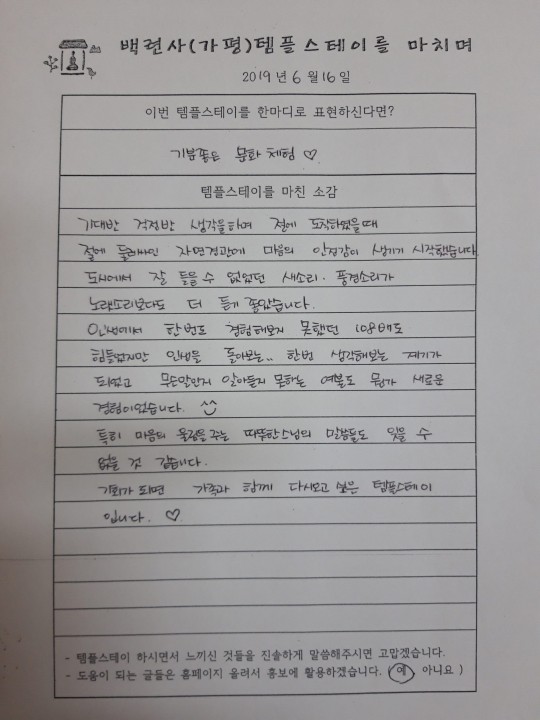 백련사(가평)템플스테이를 마치며
2019년 6월 16일
이번 템플스테이를 한마디로 표현하신다면?
기분좋은 문화 체험 ♡
템플스테이를 마친 소감
기대반 걱정반 생각을하며 절에 도착하였을때
절에 둘러싸인 자연경관에 마음의 안정감이 생기기 시작했습니다.
도시에서 잘 들을 수 없었던 새소리. 풍경소리가
노랫소리보다도 더 듣기 좋았습니다.
인생에서 한번도 경험해보지 못했던 108배도
힘들었지만 인생을 돌아보는.. 한번 생각해보는 계기가
되었고 무슨말인지 알아듣지 못하는 예불도 뭔가 새로운
경험이었습니다. ^^
특히 마음의 울림을 주는 따뜻한 스님의 말씀들도 잊을 수
없을 것 같습니다.
기회가 되면 가족과 함께 다시오고 싶은 템플스테이
입니다. ♡
- 템플스테이 하시면서 느끼신 것들을 진솔하게 말씀해주시면 고맙겠습니다.
- 도움이 되는 글들은 홈페이지 올려서 홍보에 활용하겠습니다. ( 예 아니요 )